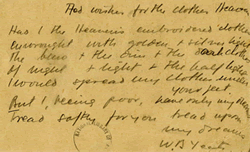 Had wishes for the clothes Heaven
Had I the Heaven's embroidered clothes
Enwrought with golden & silver light
The blue & the dim & the dark clothes
Of night & light & the half light
I would spread my clothes under
your feet.
But I, being poor, have only my
Tread softly for you tread upon
my dreams
W B Yeats